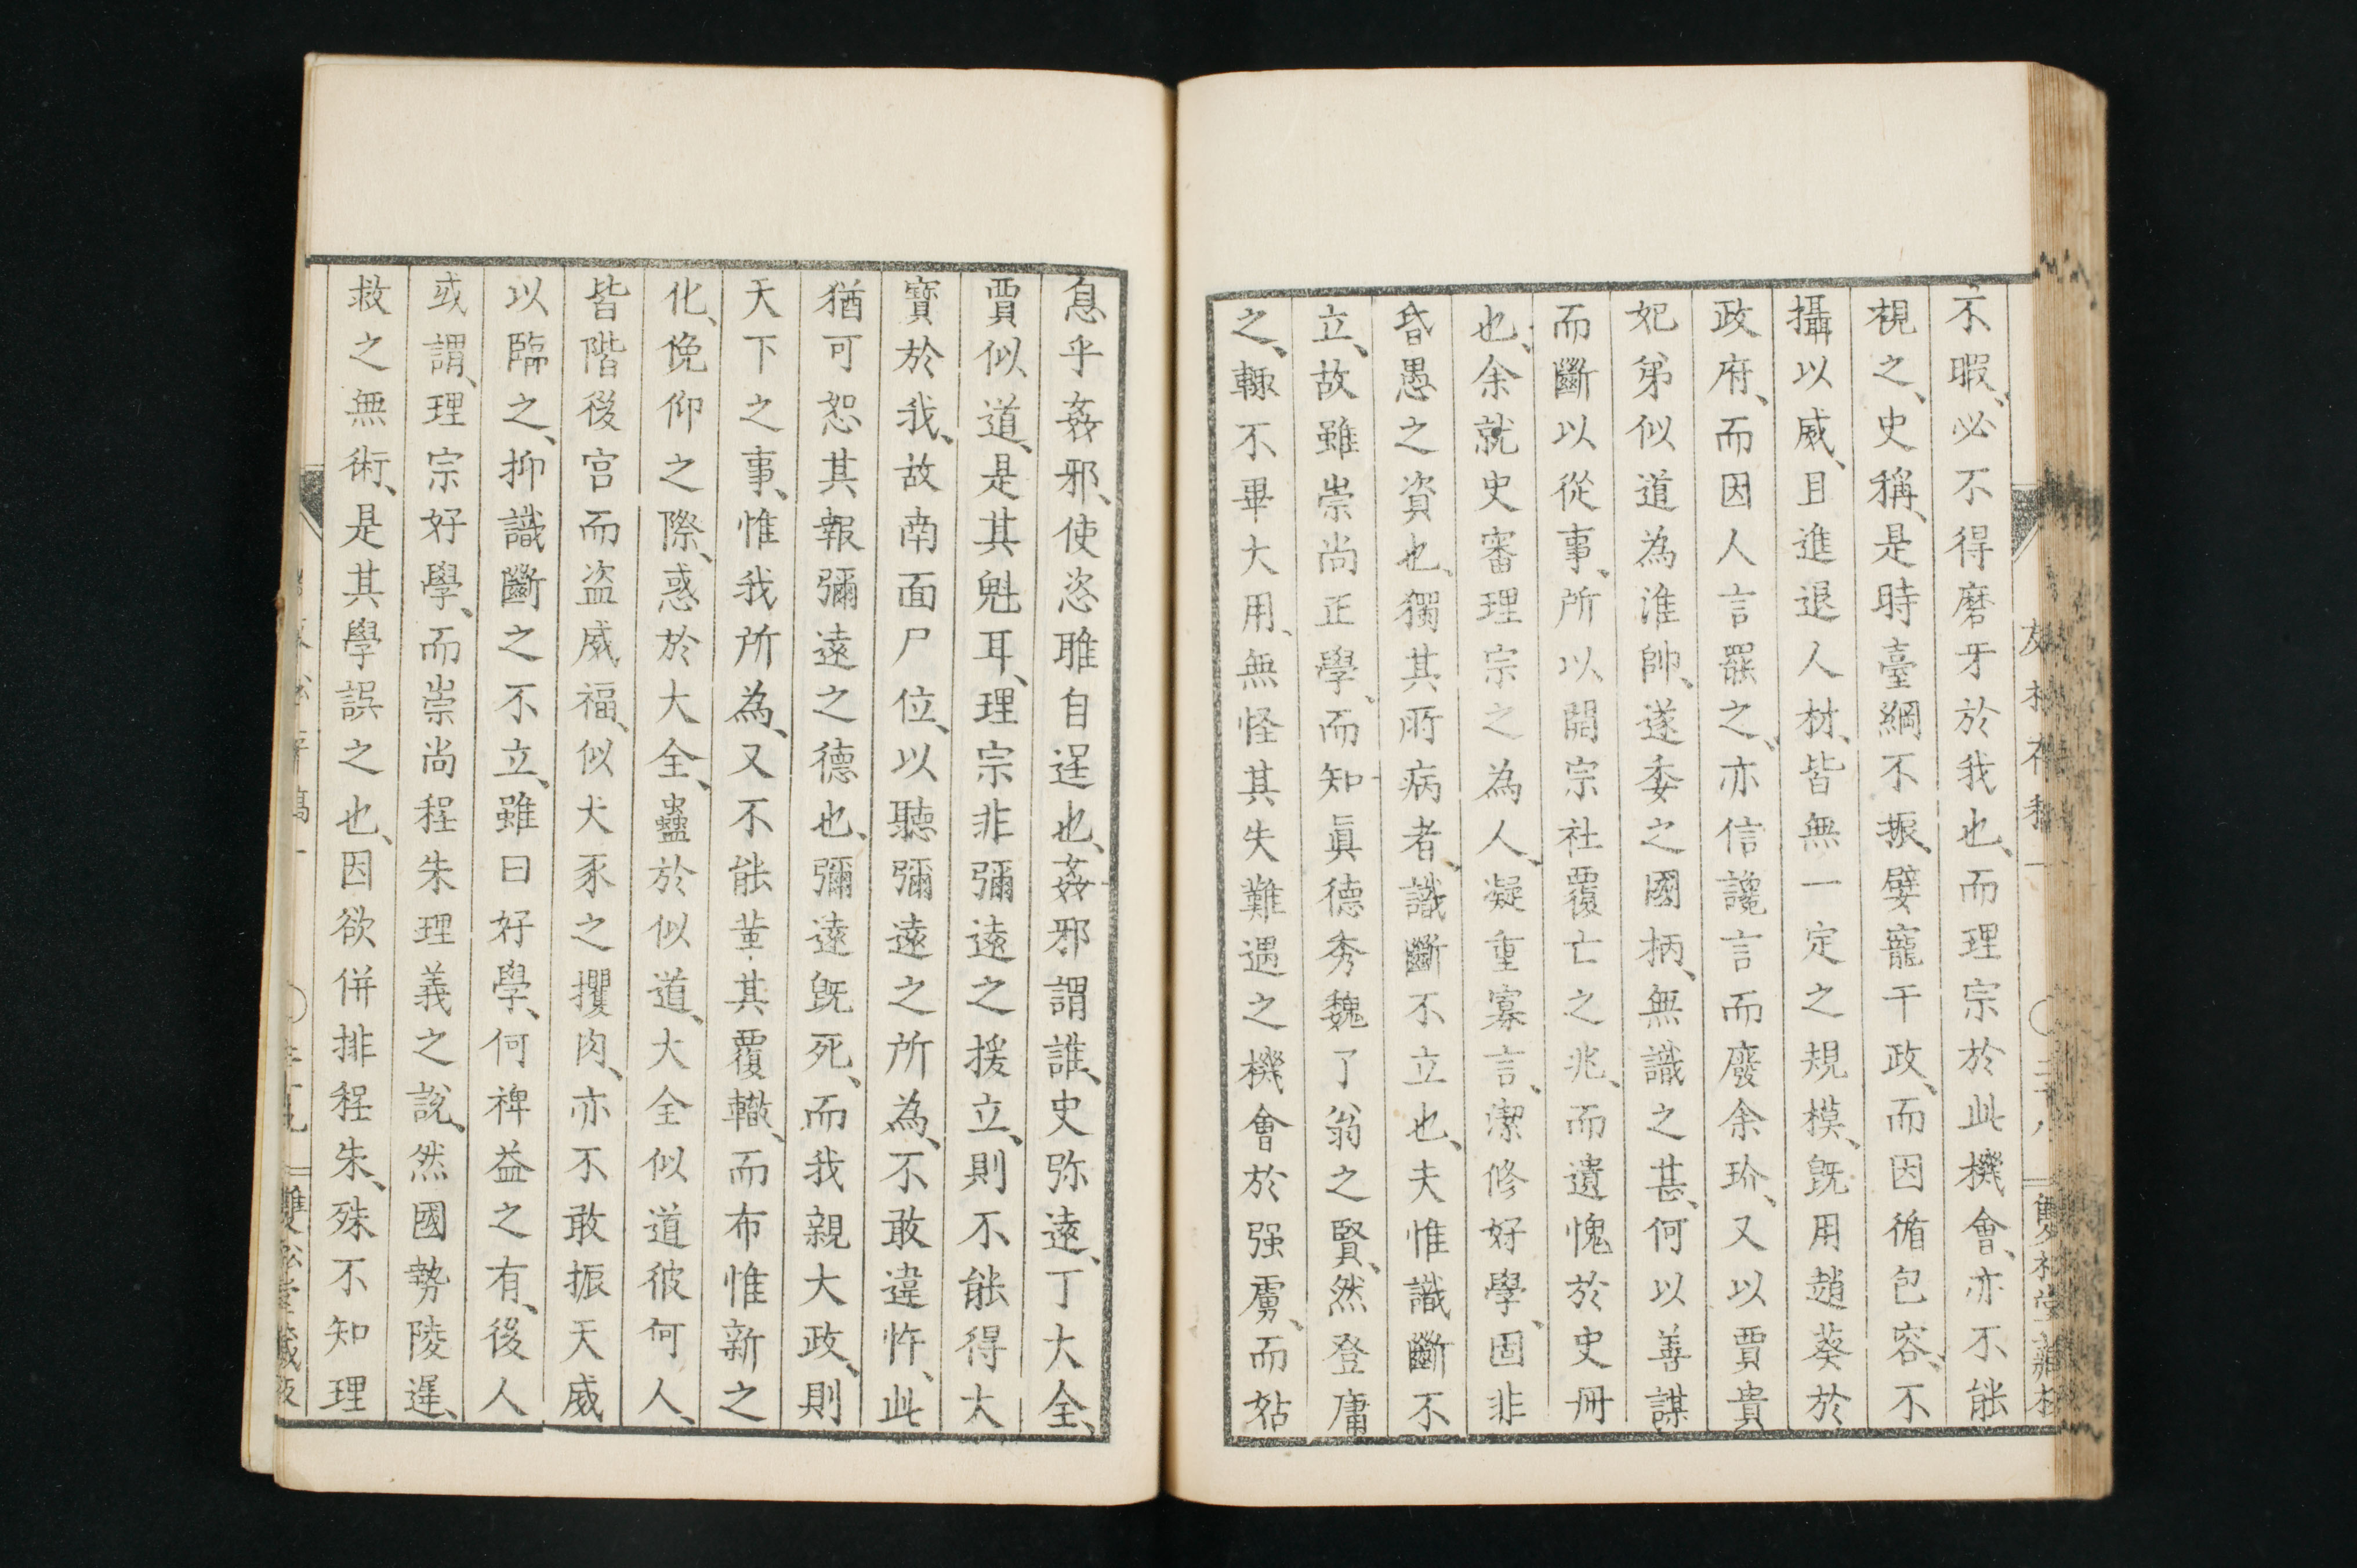 不暇、必不得磨牙於我也、而理宗於此機會、亦不能
視之、史稱、是時臺綱不振、嬖寵干政、而因循包容、不
攝以威、且進退人材、皆無一定之規模、旣用趙葵於
政府、而因人言罷之、亦信讒言而廢余玠、又以賈貴
妃弟似道為淮帥、遂委之國柄、無識之甚、何以善謀
而斷以從事、所以開宗社覆亡之兆、而遺愧於史册
也、余就史審理宗之為人、凝重寡言、潔修好學、固非
昏愚之資也、獨其所病者、識斷不立也、夫惟識斷不
立、故雖崇尚正學、而知眞德秀魏了翁之賢、然登庸
之、輙不畢大用、無怪其失難遇之機會於强虜、而姑
息乎姦邪、使恣睢自逞也、姦邪謂誰、史弥遠、丁大全、
賈似道、是其魁耳、理宗非彌遠之援立、則不能得大
寶於我、故南面尸位、以聽彌遠之所為、不敢違忤、此
猶可恕其報彌遠之德也、彌遠旣死、而我親大政、則
天下之事、惟我所為、又不能董其覆轍、而布惟新之
化、俛仰之際、惑於大全、蠱於似道、大全似道彼何人、
皆階後宮而盜威福、似犬豕之攫肉、亦不敢振天威
以臨之、抑識斷之不立、雖曰好學、何裨益之有、後人
或謂、理宗好學、而崇尚程朱理義之說、然國勢陵遲、
救之無術、是其學誤之也、因欲併排程朱、殊不知理
雙松堂藏版